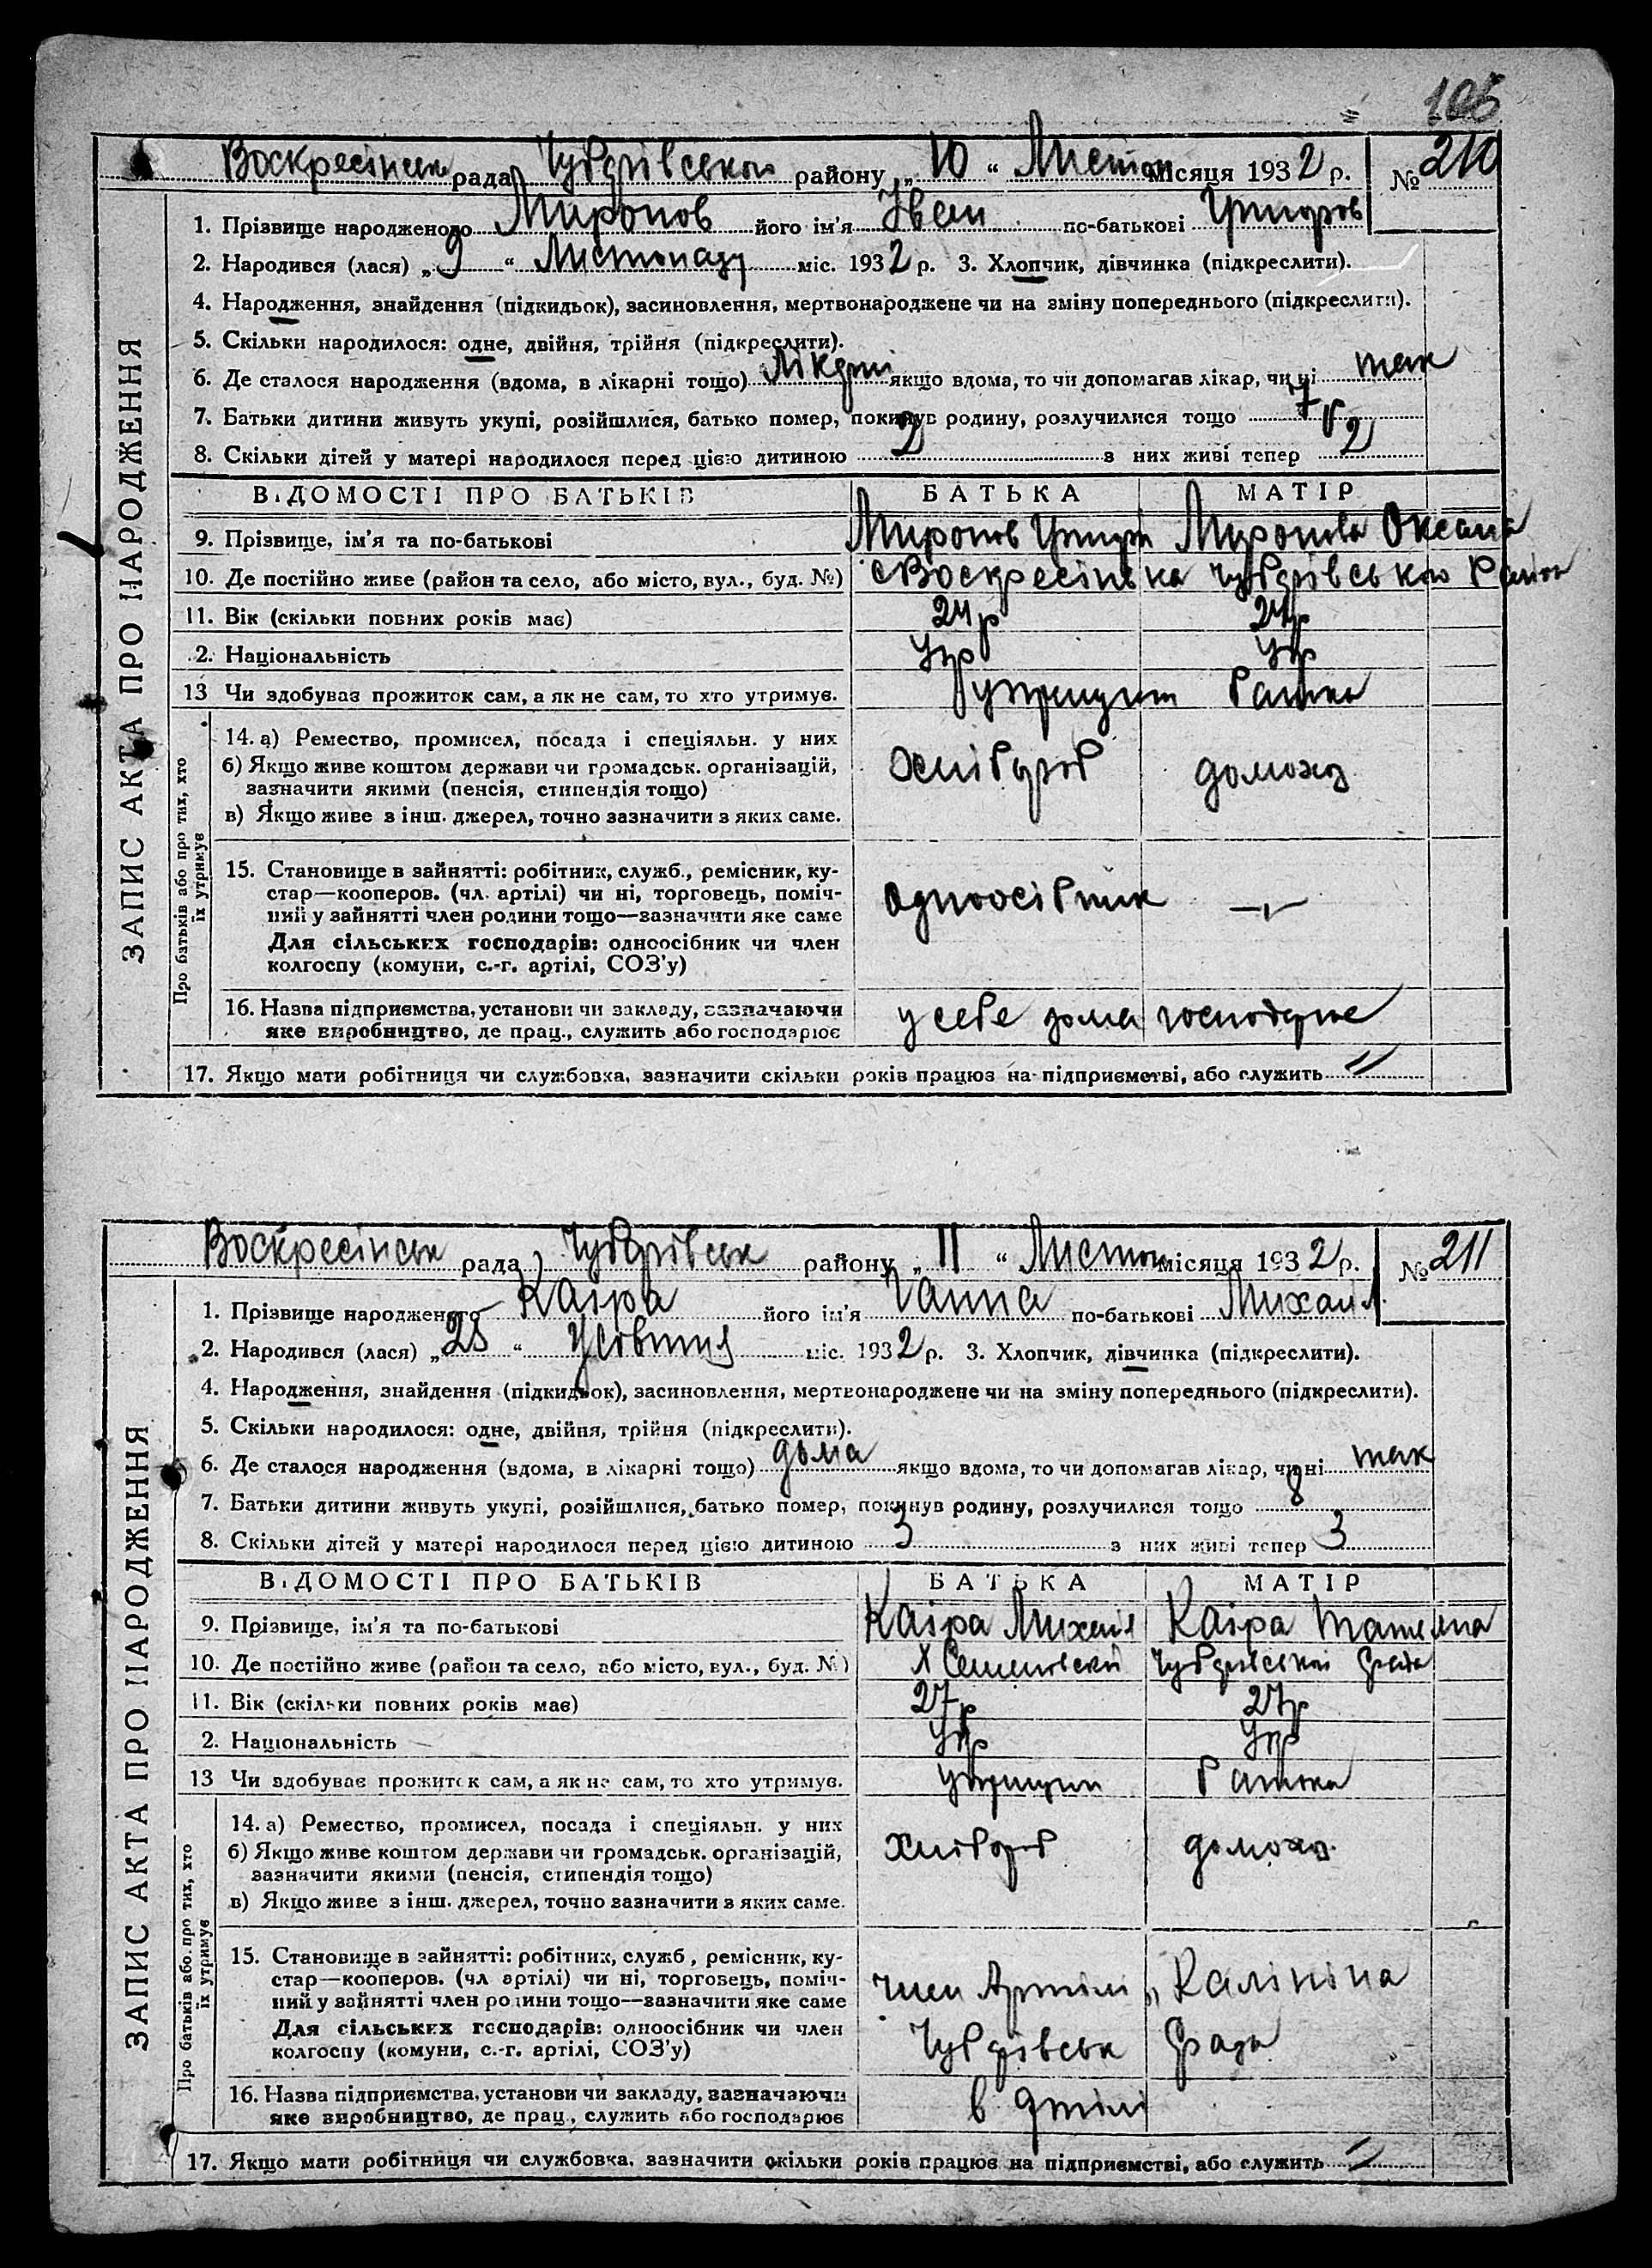 105
Воскресінськ рада Чубарівського району „10“ Листоп місяця 1932 р. № 210
ЗАПИС АКТА ПРО НАРОДЖЕННЯ
1. Прізвище народженого Миронов його ім'я Іван по-батькові Григоров
2. Народився (лася) „9“ Листопаду міс. 1932 р. 3. Хлопчик, дівчинка (підкреслити).
4. Народження, знайдення (підкидьок), засиновлення, мертвонароджене чи на зміну попереднього (підкреслити).
5. Скільки народилося: одне, двійня, трійня (підкреслити).
6. Де сталося народження (вдома, в лікарні тощо) якщо вдома, то чи допомагав лікар, чи ні так
7. Батьки дитини живуть укупі, розійшлися, батько помер, покинув родину, розлучилися тощо 7 р
8. Скільки дітей у матері народилося перед цією дитиною 2 з них живі тепер 2
ВІДОМОСТІ ПРО БАТЬКІВ БАТЬКА МАТІР
9. Прізвище, ім'я та по-батькові Миронов Григори Миронова Оксана
10. Де постійно живе (район та село, або місто, вул., буд. №) с Воскресінька Чубарівського Району
11. Вік (скільки повних років має) 24 р 24 р
2. Національність Укр Укр
13 Чи здобуває прожиток сам, а як не сам, то хто утримує.
Про батьків або про тих, хто їх утримує
14. а) Ремество, промисел, посада і спеціяльн. у них
б) Якщо живе коштом держави чи громадськ. організацій,
зазначити якими (пенсія, стипендія тощо)
в) Якщо живе з інш. джерел, точно зазначити з яких саме.
Хлібороб домохаз
15. Становище в зайнятті: робітник, служб., ремісник, ку-
стар—кооперов. (чл. артілі) чи ні, торговець, поміч-
ний у зайнятті член родини тощо—зазначити яке саме
Для сільських господарів: одноосібник чи член
колгоспу (комуни, с.-г. артілі, СОЗ'у)
Одноосібник —„—
16. Назва підприємства, установи чи закладу, зазначаючи
яке виробництво, де прац., служить або господарює
у себе дома господарює
17. Якщо мати робітниця чи службовка, зазначити скільки років працює на підприємстві, або служить „
Воскресінськ рада Чубарівськ району „11“ Листоп місяця 1932 р. № 211
ЗАПИС АКТА ПРО НАРОДЖЕННЯ
1. Прізвище народженого Каіра його ім'я Ганна по-батькові Михаил.
2. Народився (лася) „25“ міс. 1932 р. 3. Хлопчик, дівчинка (підкреслити).
4. Народження, знайдення (підкидьок), засиновлення, мертвонароджене чи на зміну попереднього (підкреслити).
5. Скільки народилося: одне, двійня, трійня (підкреслити).
6. Де сталося народження (вдома, в лікарні тощо) дома якщо вдома, то чи допомагав лікар, чи ні так
7. Батьки дитини живуть укупі, розійшлися, батько помер, покинув родину, розлучилися тощо 8
8. Скільки дітей у матері народилося перед цією дитиною 3 з них живі тепер 3
ВІДОМОСТІ ПРО БАТЬКІВ БАТЬКА МАТІР
9. Прізвище, ім'я та по-батькові Каіра Михаил Каіра Татяна
10. Де постійно живе (район та село, або місто, вул., буд. №)
11. Вік (скільки повних років має) 27 р 27 р
2. Національність Укр Укр
13 Чи здобуває прожиток сам, а як не сам, то хто утримує.
Про батьків або про тих, хто їх утримує
14. а) Ремество, промисел, посада і спеціяльн. у них
б) Якщо живе коштом держави чи громадськ. організацій,
зазначити якими (пенсія, стипендія тощо)
в) Якщо живе з інш. джерел, точно зазначити з яких саме.
Хлібороб домохаз.
15. Становище в зайнятті: робітник, служб., ремісник, ку-
стар—кооперов. (чл артілі) чи ні, торговець, поміч-
ний у зайнятті член родини тощо—зазначити яке саме
Для сільських господарів: одноосібник чи член
колгоспу (комуни, с.-г. артілі, СОЗ'у)
член Артілі „Калініна
Чубарівськ
16. Назва підприємства, установи чи закладу, зазначаючи
яке виробництво, де прац., служить або господарює
в Артілі
17. Якщо мати робітниця чи службовка, зазначити скільки років працює на підприємстві, або служить „